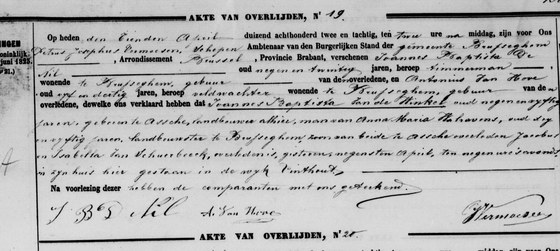 AKTE VAN OVERLIJDEN, N.º 19.
Op heden den tienden April duizend achthonderd twee en tachtig, ten twee ure na middag, zijn voor Ons
Petrus Josephus Vermoesen, Schepen Ambtenaar van den Burgerlijken Stand der gemeente Brusseghem
, Arrondissement Brussel, Provincie Brabant, verschenen Joannes Baptista De
Nil oud negen en twintig jaren, beroep timmerman
wonende te Brusseghem, gebuur van den overledene, en Antonius Van Hove
oud en dertig jaren, beroep veldwachter wonende te Brusseghem, gebuur van de n
overledene, dewelke ons verklaard hebben dat Joannes Baptista Van de Winkel oud negen en vyftig
jaren, geboren te Assche, landbouwer alhier, man van Anna Maria Walravens, oud
en vyftig jaren, landbouwster te Brusseghem, zoon van beide te Assche overleden Jacobus
en Isabella Van Schuerbeeck, overleden is, gisteren, negensten April, ten negen ure 's avonds,
in zyn huis hier gestaan in de wyk
Na voorlezing dezer hebben de comparanten met ons geteekend.
J B De Nil A. Van Hove Vermoesen
AKTE VAN OVERLIJDEN, N.º 20.